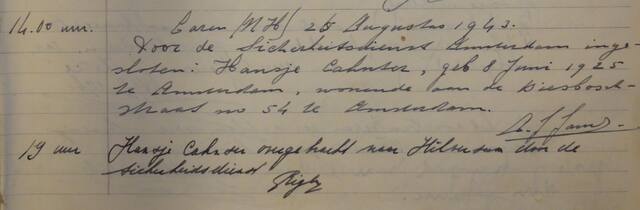 14.00 uur. Laren (N.H.) 25 Augustus 1943.
Door de Sicherheitsdienst Amsterdam inge-
sloten: Hansje Cahnter, geb 8 Juni 1925
te Amsterdam, wonende aan de Biesbosch-
straat no 54 te Amsterdam.
19 uur Hansje Cahnter overgebracht naar Hilversum door de
Sicherheidsdienst